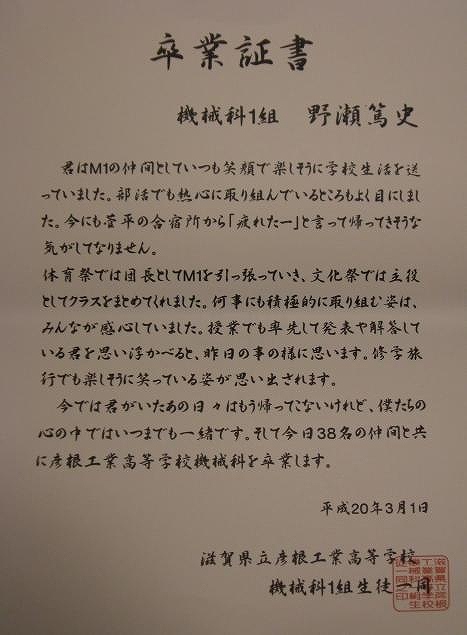 卒業証書
機械科1組 野瀬篤史
君はM1の仲間としていつも笑顔で楽しそうに学校生活を送
っていました。部活でも熱心に取り組んでいるところもよく目にしまし
た。今にも菅平の合宿所から「疲れたー」と言って帰ってきそうな
気がしてなりません。
体育祭では団長としてM1を引っ張っていき、文化祭では主役
としてクラスをまとめてくれました。何事にも積極的に取り組む姿は、
みんなが感心していました。授業でも率先して発表や解答して
いる君を思い浮かべると、昨日の事の様に思います。修学旅
行でも楽しそうに笑っている姿が思い出されます。
今では君がいたあの日々はもう帰ってこないけれど、僕たちの
心の中ではいつまでも一緒です。そして今日38名の仲間と共
に彦根工業高等学校機械科を卒業します。
平成20年3月1日
滋賀県立彦根工業高等学校
機械科1組生徒一同